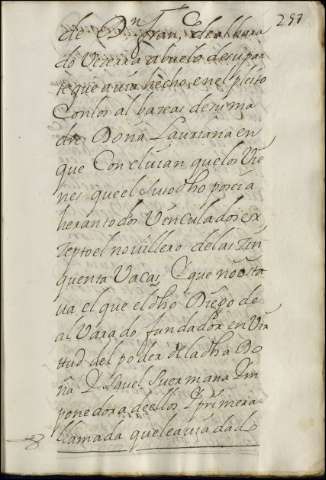 297
de Dn fran,co de albara
do Vecerra abuelo de su par
te que avia hecho, en el pleito
Con los albaceas de su ma
dre Doña Lauriana en
que Concluian que los Vie
nes que el suso dho poseia
heran todos Vinculados ex
septo el novillero de las sin
quenta Vacas, Y que no esta
va el que el dho Diego de
alvarado fundador en Vir
tud del poder de la dha Do
ña Ysavel su ermana Ym
ponedora de ellos, Y primera
llamada que le avia dado